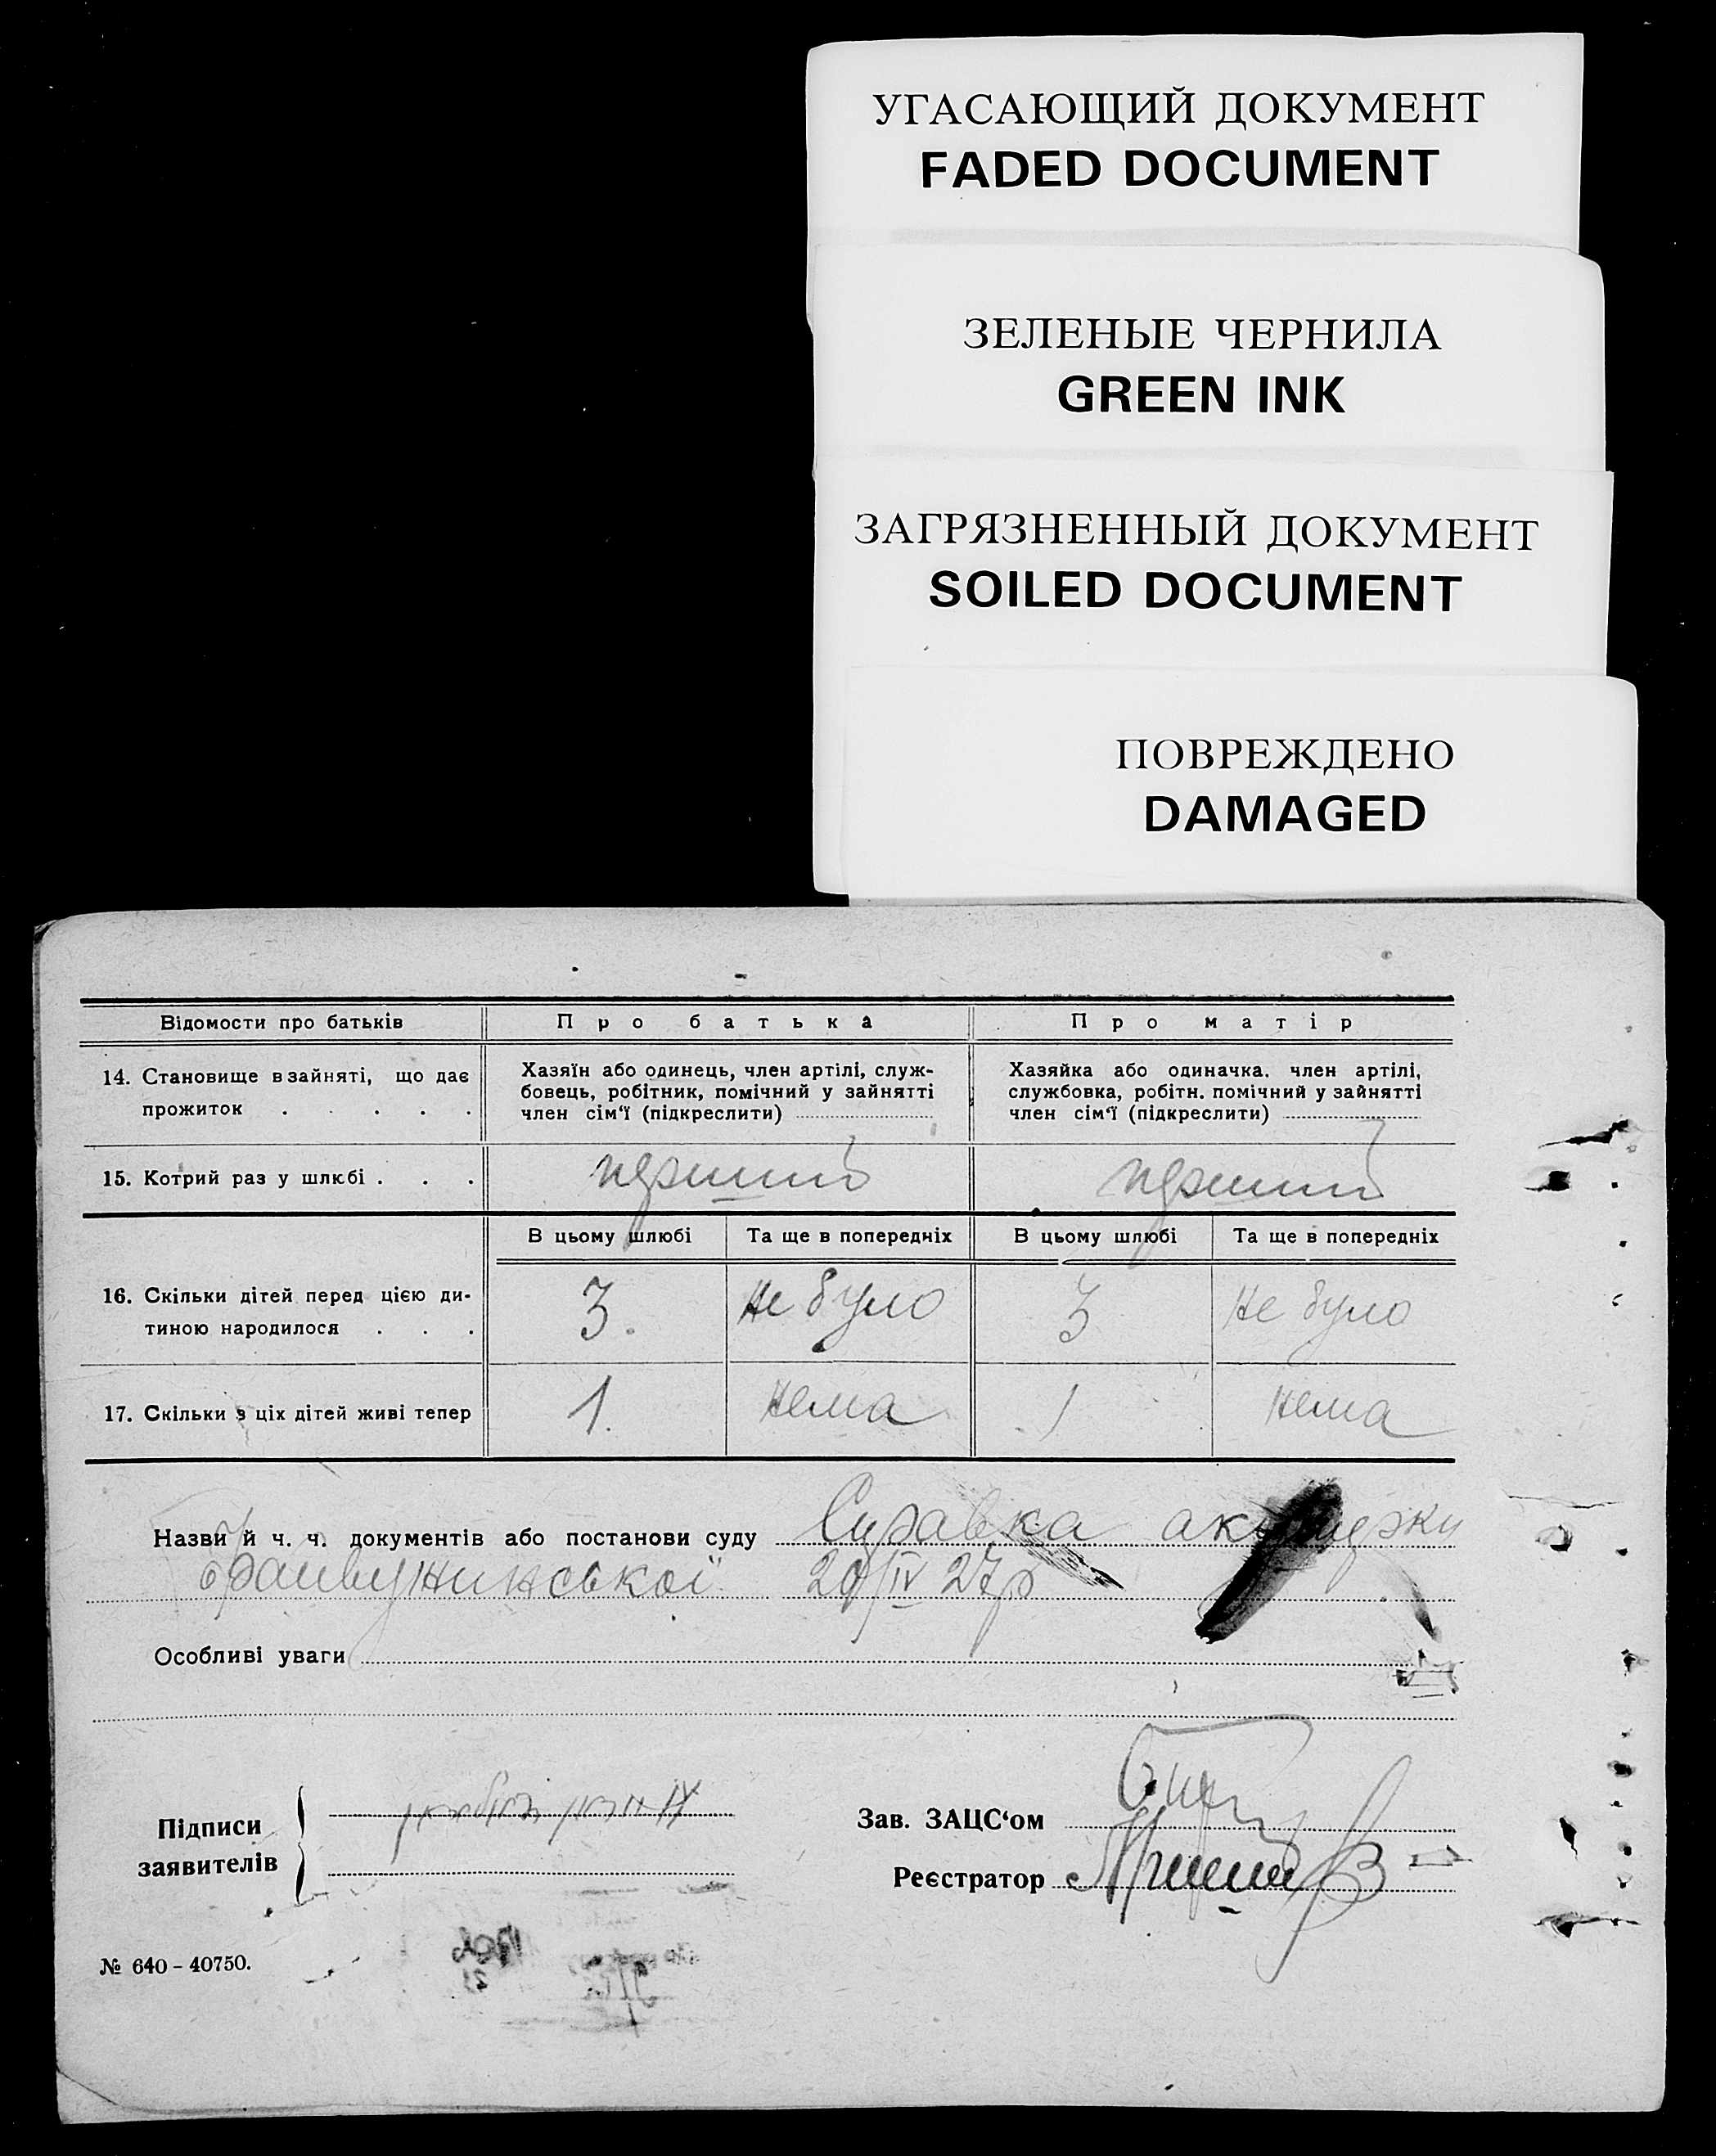 УГАСАЮЩИЙ ДОКУМЕНТ
FADED DOCUMENT
ЗЕЛЕНЫЕ ЧЕРНИЛА
GREEN INK
ЗАГРЯЗНЕННЫЙ ДОКУМЕНТ
SOILED DOCUMENT
ПОВРЕЖДЕНО
DAMAGED
Відомости про батьків
Про батька
Про матір
14. Становище в зайняті, що дає
прожиток . . . . .
Хазяїн або одинець, член артілі, служ-
бовець, робітник, помічний у зайнятті
член сім'ї (підкреслити)
Хазяйка або одиначка. член артілі,
службовка, робітн. помічний у зайнятті
член сім'ї (підкреслити)
15. Котрий раз у шлюбі . . .
перший
перший
В цьому шлюбі
Та ще в попередніх
В цьому шлюбі
Та ще в попередніх
16. Скільки дітей перед цією ди-
тиною народилося . . .
3.
Не було
3
Не було
17. Скільки з ціх дітей живі тепер
1.
Нема
1
Нема
Назви й ч. ч. документів або постанови суду Справка акушерки
20/IV 27р
Особливі уваги
Підписи
заявителів
Зав. ЗАЦС'ом
Реєстратор
№ 640 – 40750.